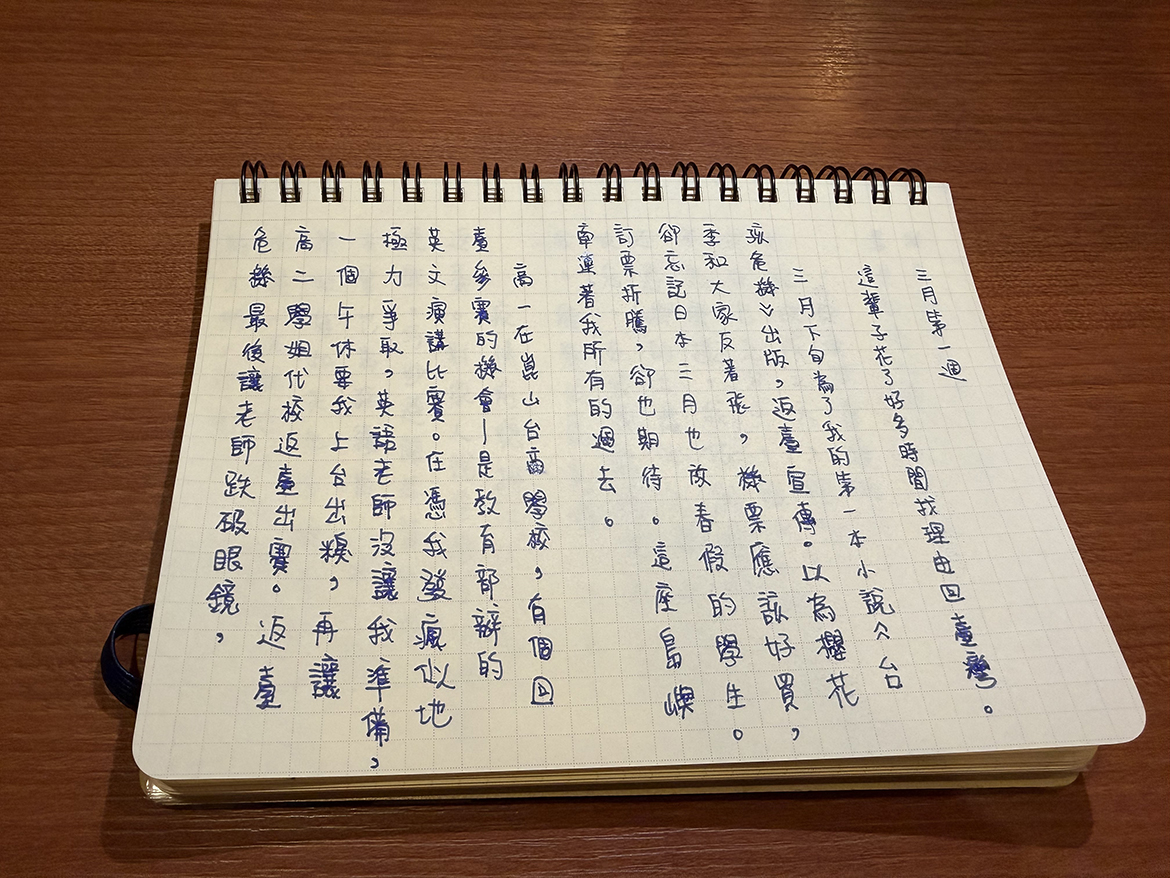 三月第一週
這輩子花了好多時間找理由回臺灣。
三月下旬為了我的第一本小說《台
孩危機》出版，返臺宣傳。以為櫻花
季和大家反著飛，機票應該好買，
卻忘記日本三月也放春假的學生。
訂票折騰，卻也期待。這座島嶼
牽連著我所有的過去。
高一在崑山台商學校，有個回
臺參賽的機會—是教育部辦的
英文演講比賽。在憑我發瘋似地
極力爭取，英語老師沒讓我準備，
一個午休要我上台出糗，再讓
高二學姐代校返臺出賽。返臺
危機最後讓老師跌破眼鏡，